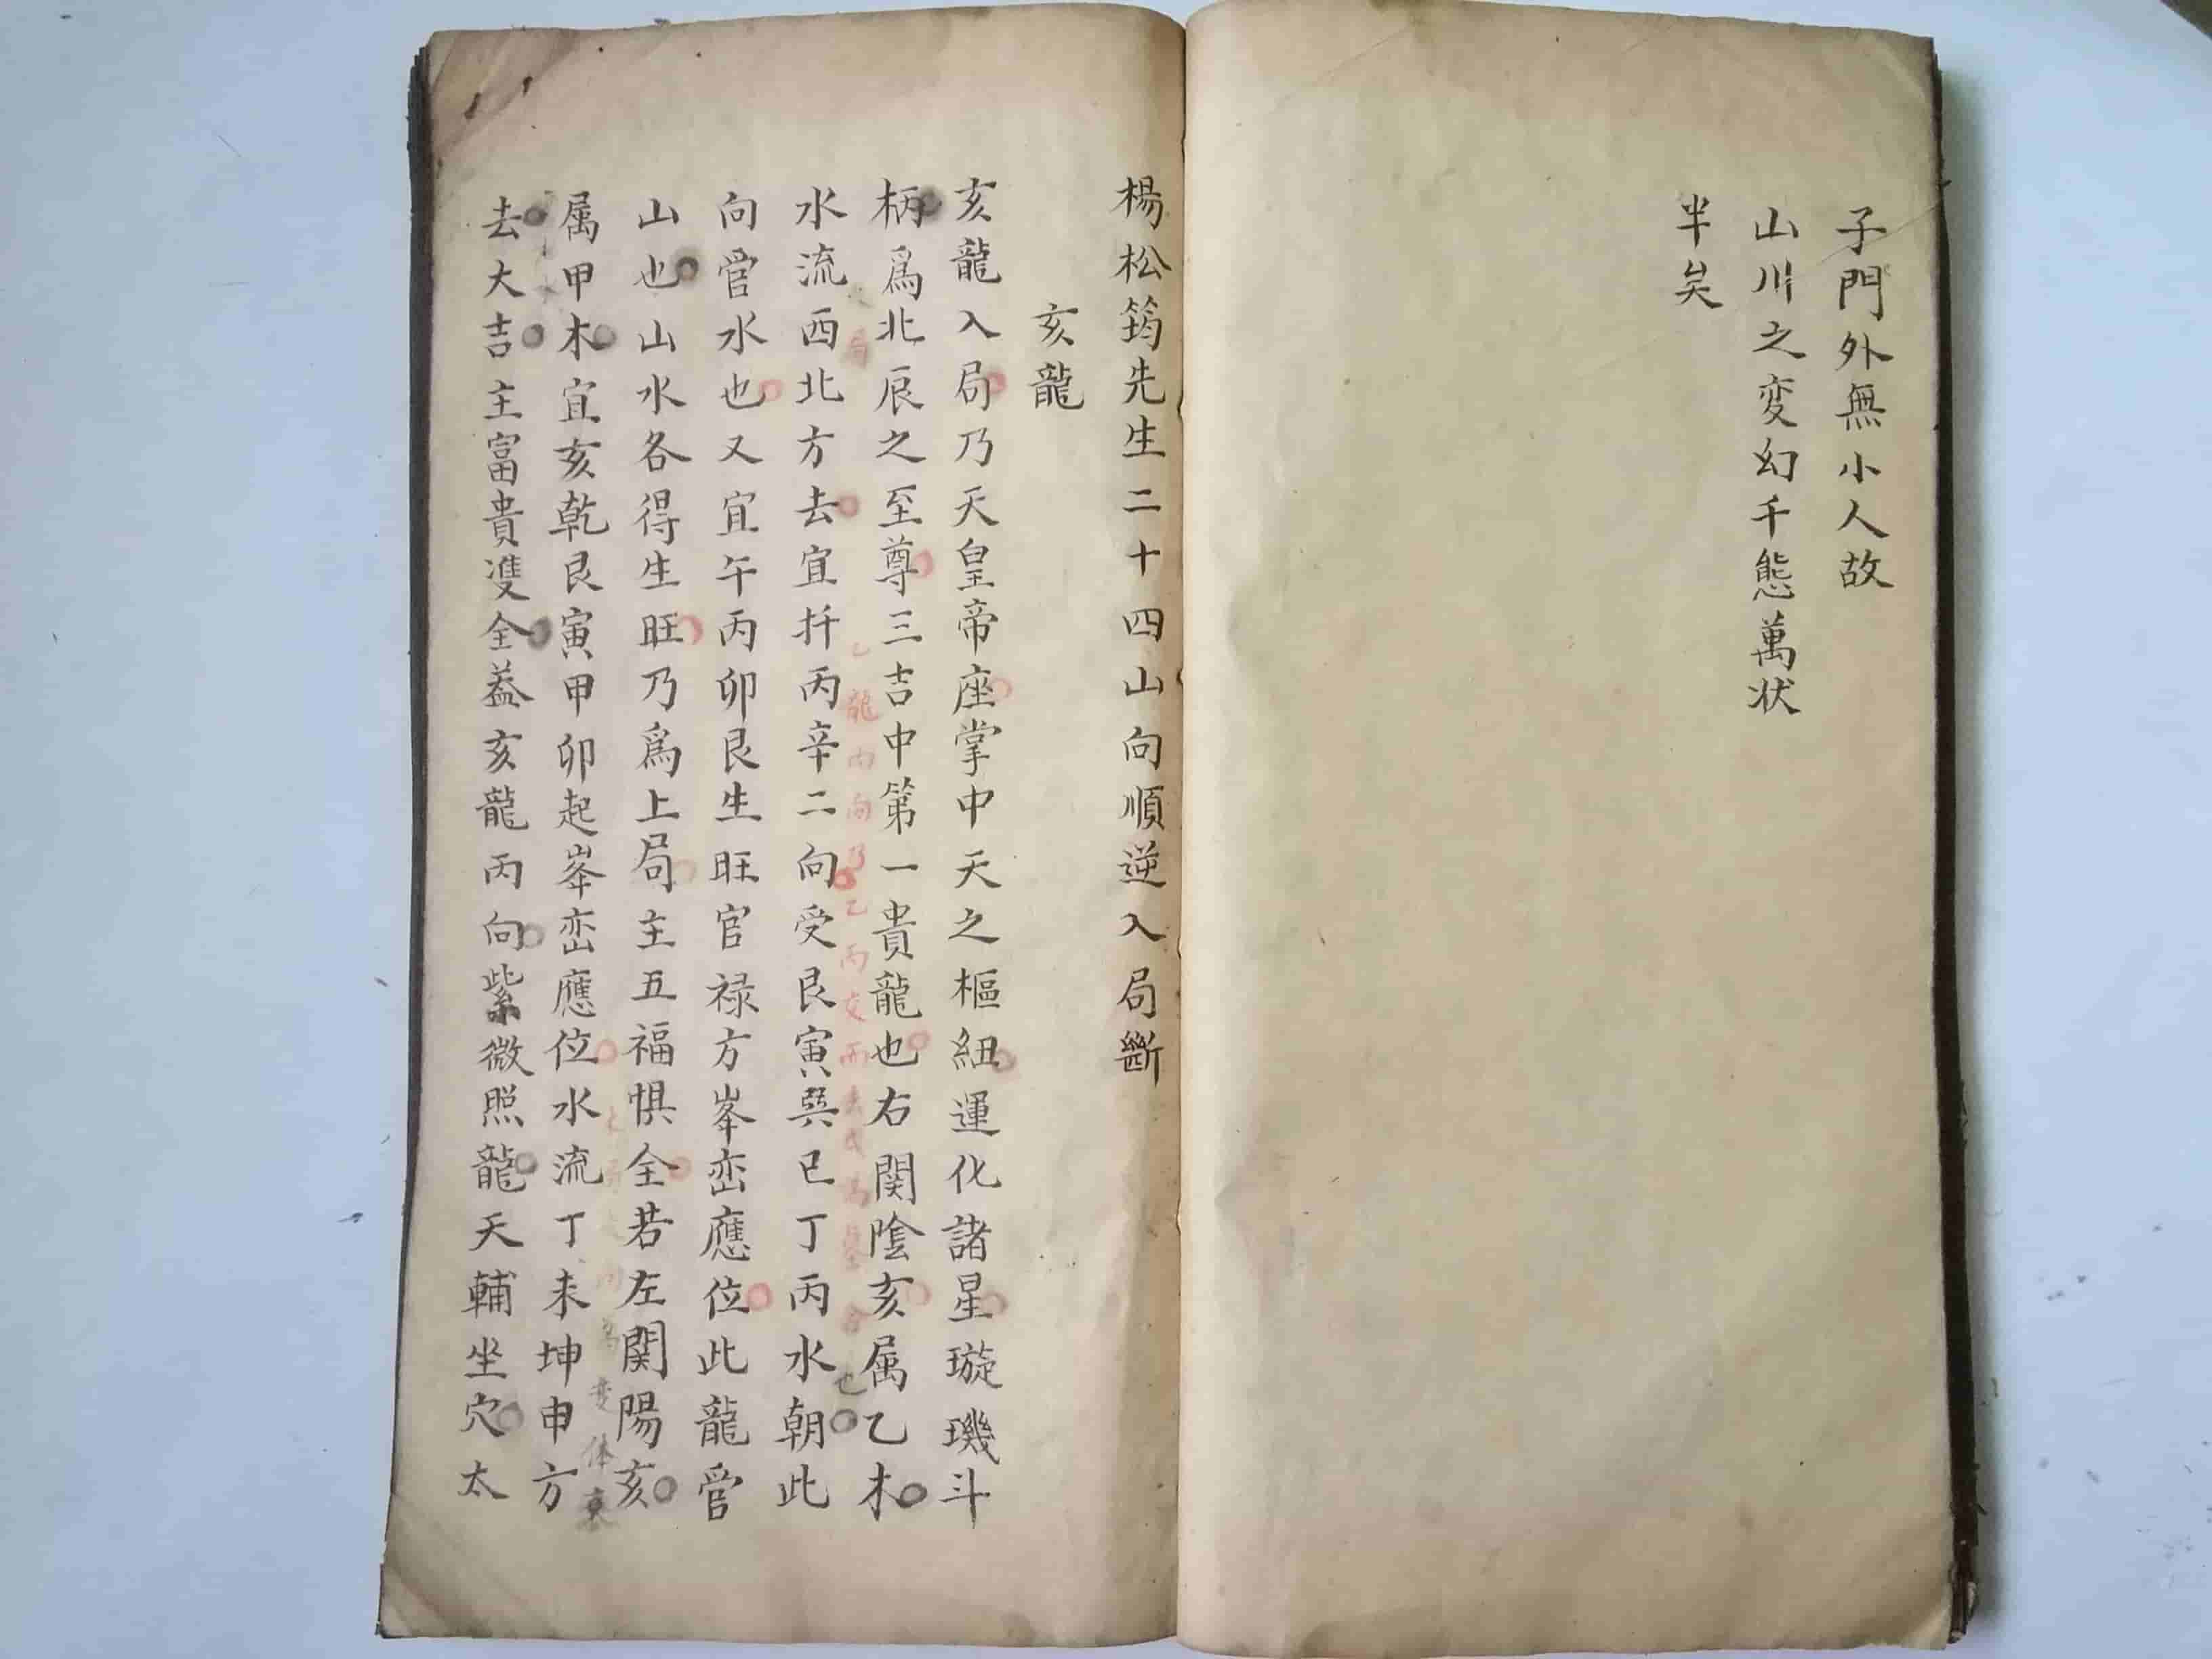 子門外無小人故
山川之変幻千態萬状
半矣
楊松筠先生二十四山向順逆入局斷
亥龍
亥龍入局乃天皇帝座掌中天之樞紐運化諸星璇璣斗
柄爲北辰之至尊三吉中第一貴龍也右関陰亥属乙木
水流西北方去宜扦丙辛二向受艮寅巽巳丁丙水朝此
乙龍丙向乃乙丙交而
也
向官水也又宜午丙卯艮生旺官禄方峯巒應位此龍官
山也山水各得生旺乃爲上局主五福惧全若左関陽亥
属甲木宜亥乾艮寅甲卯起峯巒應位水流丁未坤申方
去大吉主富貴雙全盖亥龍丙向紫微照龍天輔坐穴太